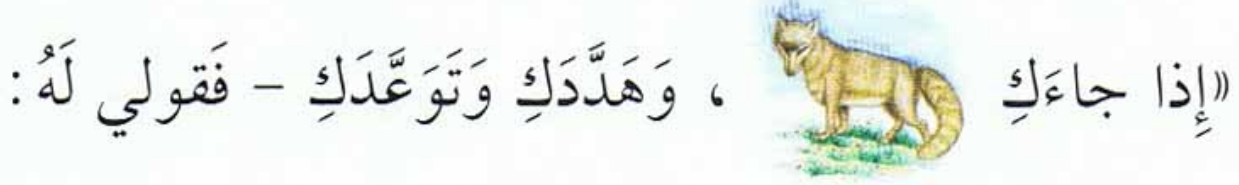 «إِذا جاءَكِ ، وَهَدَّدَكِ وَتَوَعَّدَكِ – فَقولي لَهُ: